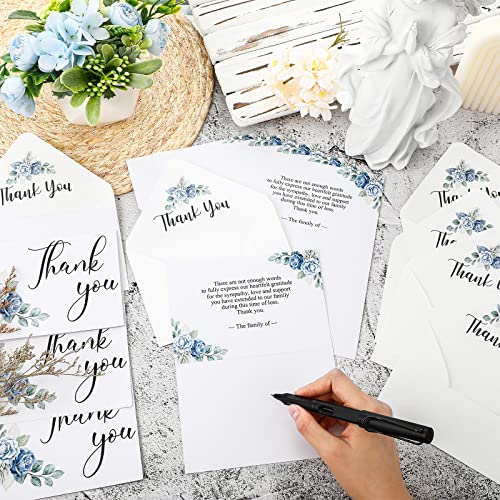 Thank You
Thank
you
Thank
you
Thank
you
Thank You
There are not enough words
to fully express our heartfelt gratitude
for the sympathy, love and support
you have extended to our family
during this time of loss.
Thank you.
— The family of —
There are not enough words
to fully express our heartfelt gratitude
for the sympathy, love and support
you have extended to our family
during this time of loss.
Thank you.
— The family of —
Thank You
Thank You
Thank You
Thank You